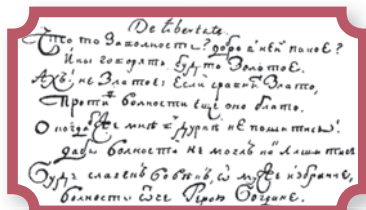 De libertate.
Что то За волность? добро в ней какое?
Ины говорять, будто Золотое.
Ахъ! не Златое: Если сравнить Злато,
Против волности еще оно блато.
О когда бы же мнѣ в дурнѣ не пошитись!
дабы волности не моглъ лишитись
Будь славенъ вовѣкъ, ѡ муже избранне,
волности ѡтче Герою Богдане.